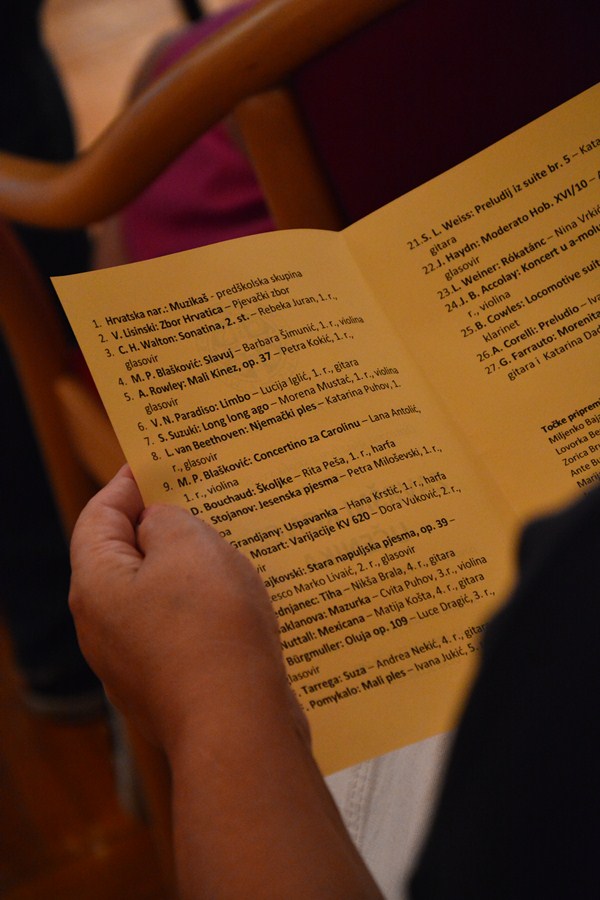 1. Hrvatska nar.: Muzikaš - predškolska skupina
2. V. Lisinski: Zbor Hrvatica – Pjevački zbor
3. C. H. Walton: Sonatina, 2. st. – Rebeka Juran, 1. r.,
glasovir
4. M. P. Blašković: Slavuj – Barbara Šimunić, 1. r., violina
5. A. Rowley: Mali Kinez, op. 37 – Petra Kokić, 1. r.,
glasovir
6. V. N. Paradiso: Limbo – Lucija Iglić, 1. r., gitara
7. S. Suzuki: Long long ago – Morena Mustać, 1. r., violina
8. L. van Beethoven: Njemački ples – Katarina Puhov, 1.
r., glasovir
9. M. P. Blašković: Concertino za Carolinu – Lana Antolić,
1. r., violina
D. Bouchaud: Školjke – Rita Peša, 1. r., harfa
Stojanov: Jesenska pjesma – Petra Miloševski, 1. r.,
Grandjany: Uspavanka – Hana Krstić, 1. r., harfa
Mozart: Varijacije KV 620 – Dora Vuković, 2. r.,
ajkovski: Stara napuljska pjesma, op. 39 –
esco Marko Livaić, 2. r., glasovir
dnjanec: Tiha – Nikša Brala, 4. r., gitara
aklanova: Mazurka – Cvita Puhov, 3.r., violina
Nuttall: Mexicana – Matija Košta, 4. r., gitara
Bürgmuller: Oluja op. 109 – Luce Dragić, 3. r.,
glasovir
. Tarrega: Suza – Andrea Nekić, 4. r., gitar
. Pomykalo: Mali ples – Ivana Jukić, 5.
21.S. L. Weiss: Preludij iz suite br. 5 – Kata
gitara
22.J. Haydn: Moderato Hob. XVI/10 – A
glasovir
23.L. Weiner: Rókatánc – Nina Vrkić
24.J. B. Accolay: Koncert u a-molu
r., violina
25.B. Cowles: Locomotive suite
klarinet
26.A. Corelli: Preludio – Iva
27.G. Farrauto: Morenita
gitara i Katarina Dad
Točke pripremi
Miljenko Baja
Lovorka Be
Zorica Brn
Ante Bu
Marij